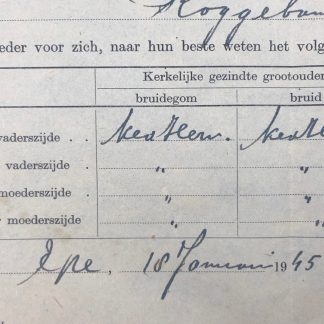 Roggeban
eder voor zich, naar hun beste weten het volg
Kerkelijke gezindte grootouder
bruidegom bruid
vaderszijde . . Ned Herv. Ned He
vaderszijde . „ „
moederszijde . „ „
r moederszijde „ „
Epe, 18 Januari 1945